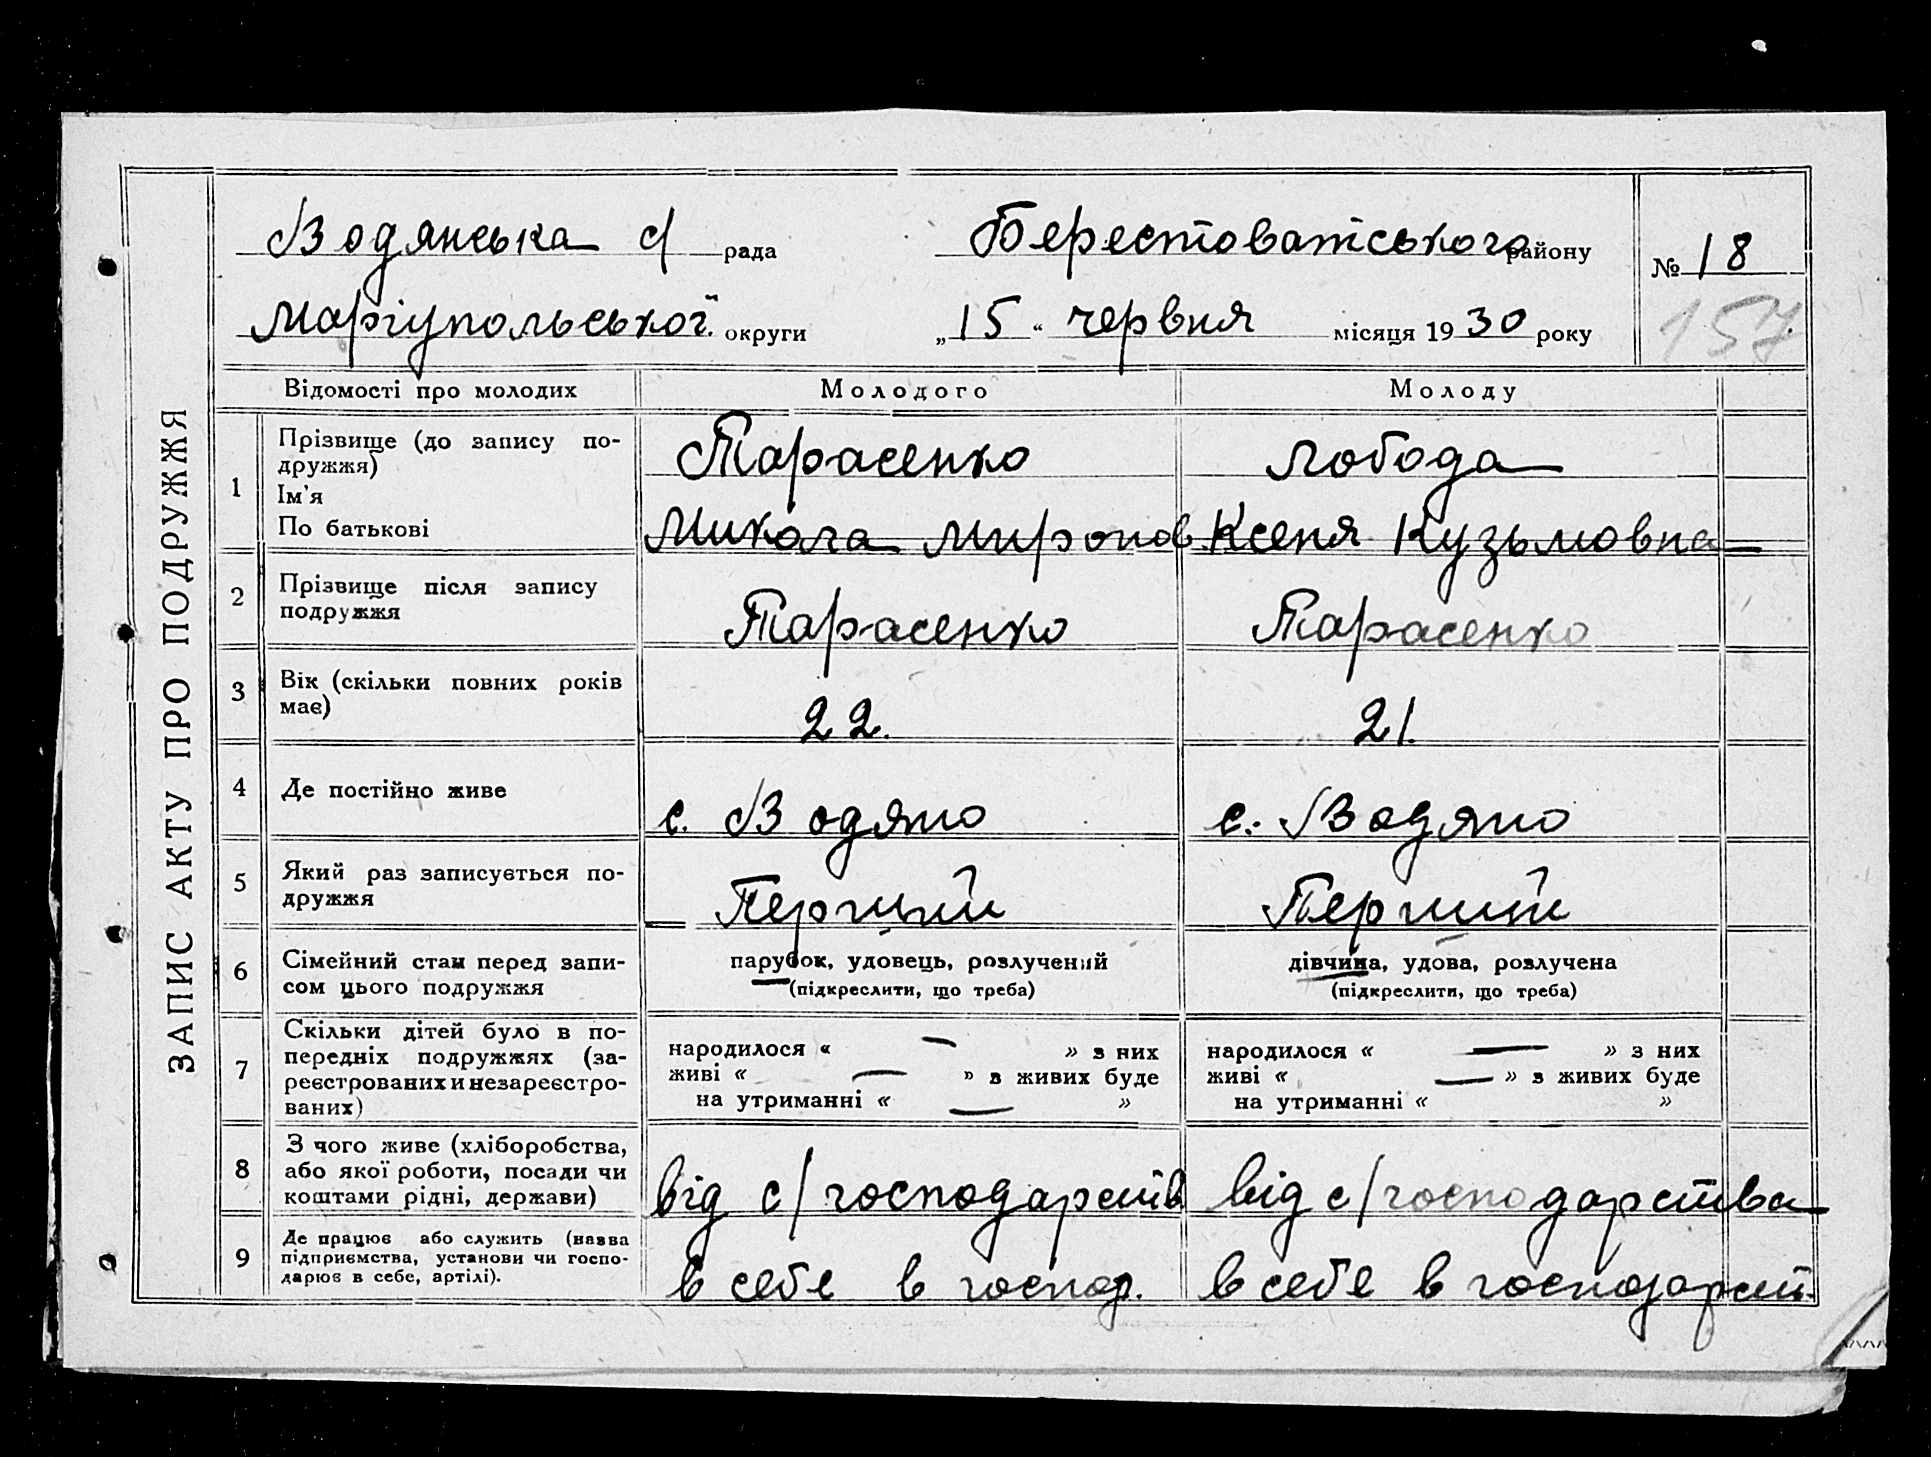 ЗАПИС АКТУ ПРО ПОДРУЖЖЯ
Водянська с/ рада Берестоватського району № 18
Маріупольської округи „15“ червня місяця 1930 року 157
Відомості про молодих Молодого Молоду
1 Прізвище (до запису по-
дружжя) Тарасенко Лобода
Ім'я
По батькові Микола Миронов Ксеня Кузьмовна
2 Прізвище після запису
подружжя Тарасенко Тарасенко
3 Вік (скільки повних років
має) 22. 21.
4 Де постійно живе с. Водяно с. Водяно
5 Який раз записується по-
дружжя Перший Перший
6 Сімейний стан перед запи- парубок, удовець, розлучений дівчина, удова, розлучена
сом цього подружжя (підкреслити, що треба) (підкреслити, що треба)
7 Скільки дітей було в по-
передніх подружжях (за-
реєстрованих и незареєстро-
ваних)
народилося « — » з них
живі « — » з живих буде
на утриманні « — »
народилося « — » з них
живі « — » з живих буде
на утриманні « »
8 З чого живе (хліборобства,
або якої роботи, посади чи
коштами рідні, держави) від с/господарств від с/господарства
9 Де працює або служить (назва
підприємства, установи чи госпо-
дарює в себе, артілі). в себе в господ. в себе в господарст.